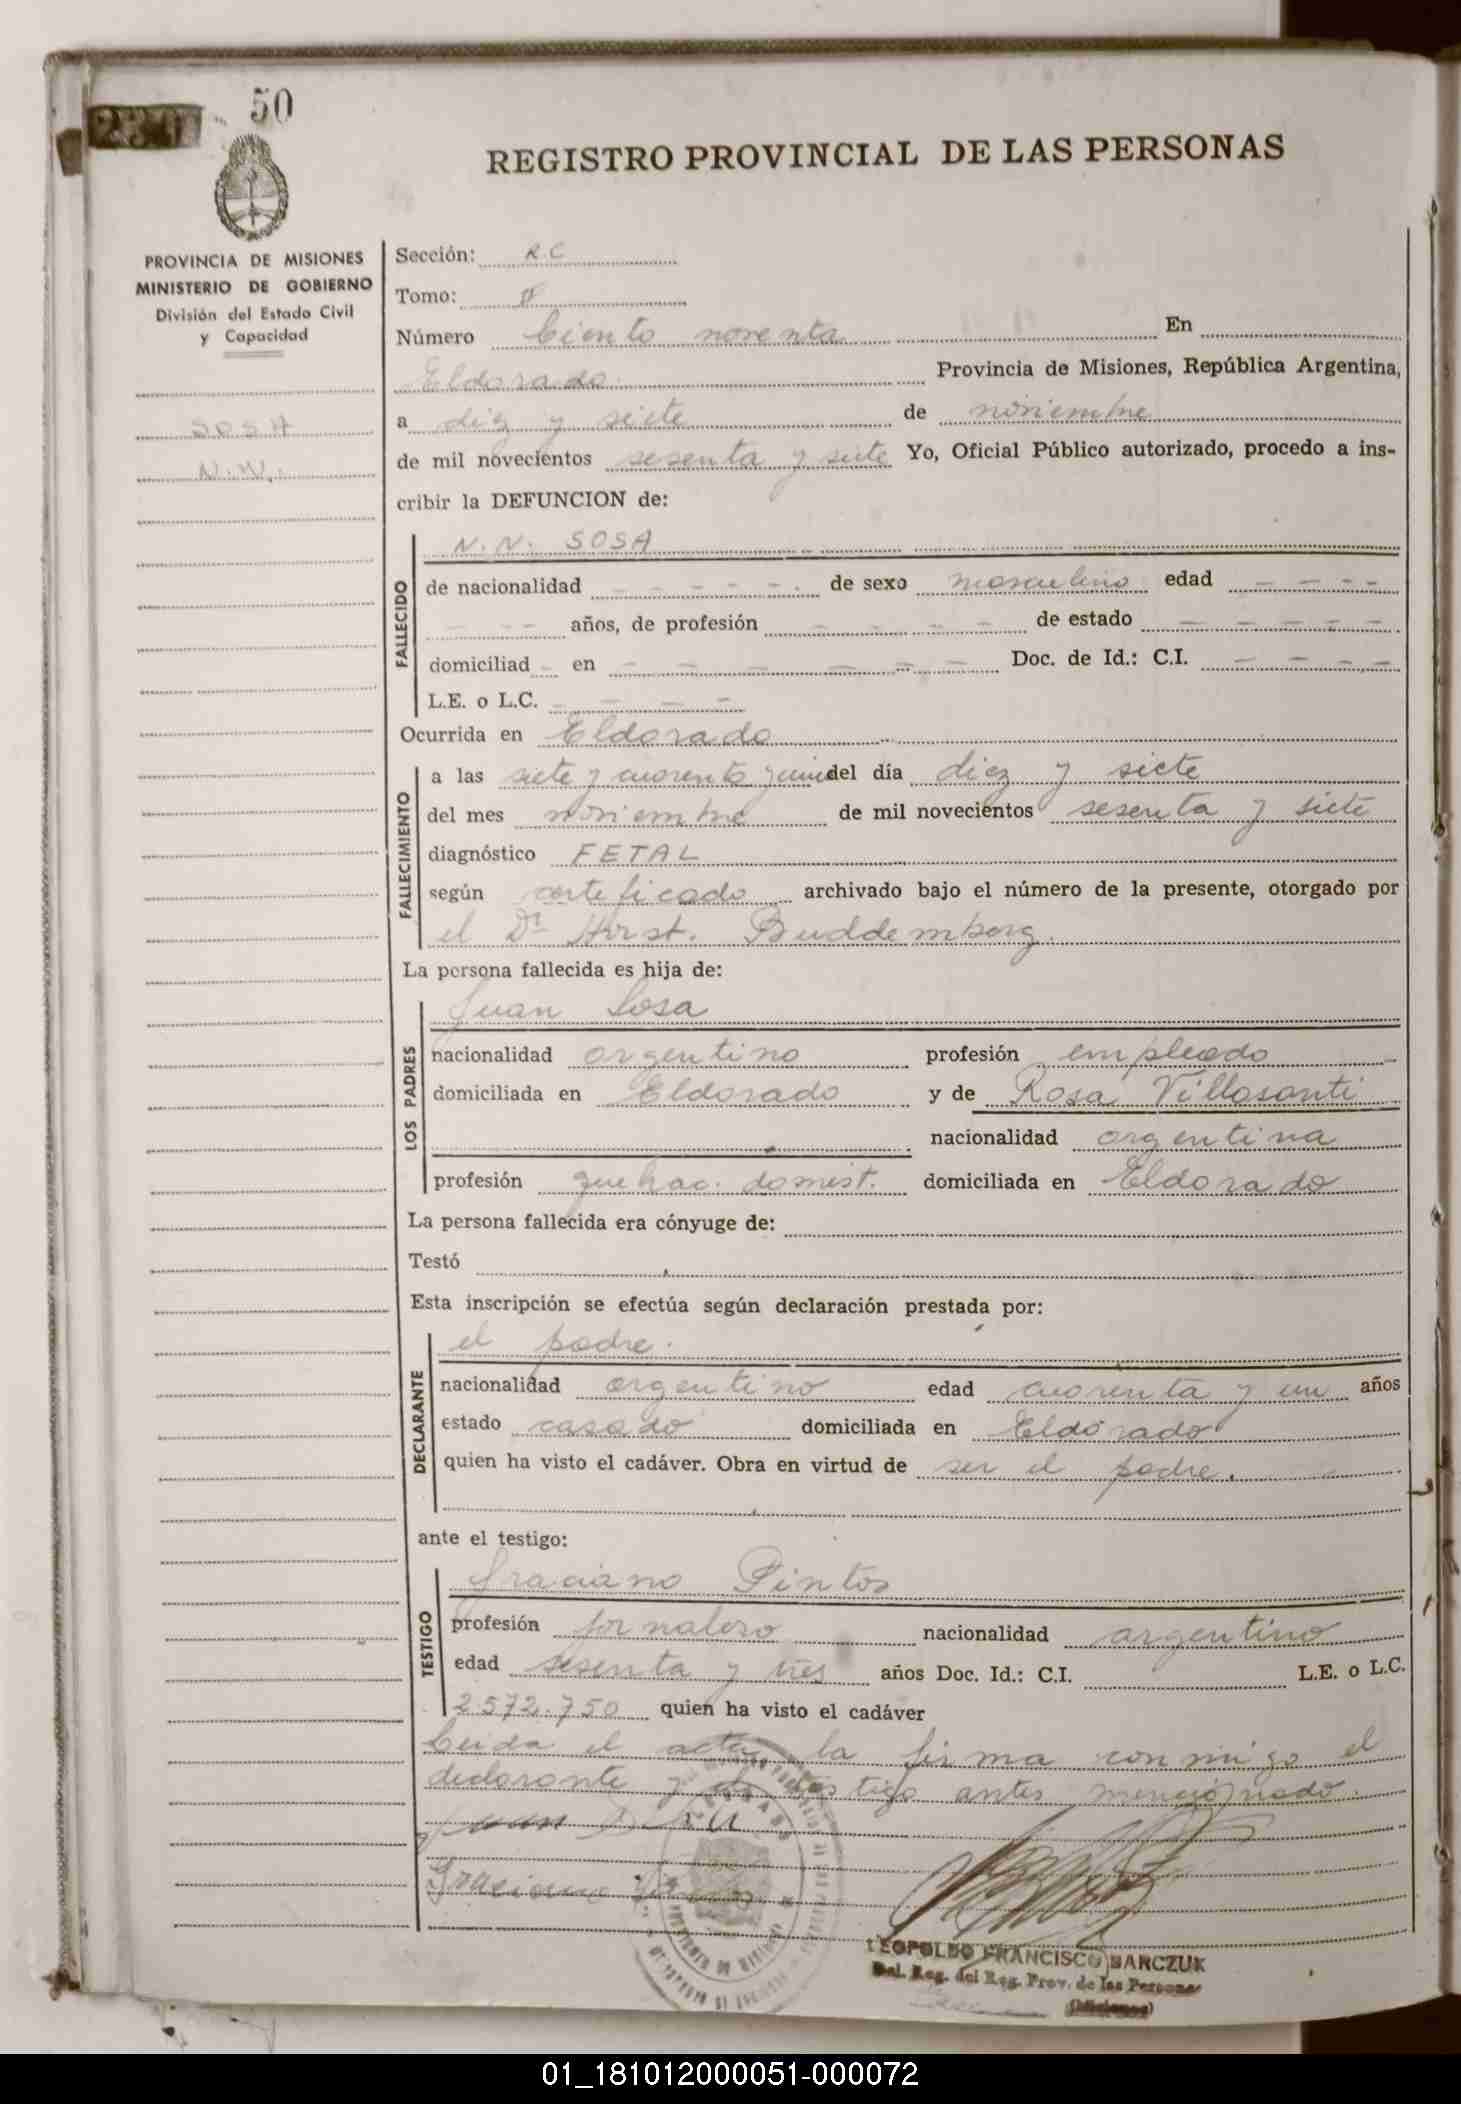 50
230
REGISTRO PROVINCIAL DE LAS PERSONAS
PROVINCIA DE MISIONES
MINISTERIO DE GOBIERNO
División del Estado Civil
y Capacidad
SOSA
N.N.
Sección: R.C
Tomo: II
Número Ciento noventa En
Eldorado Provincia de Misiones, República Argentina,
a diez y siete de noviembre
de mil novecientos sesenta y siete Yo, Oficial Público autorizado, procedo a ins-
cribir la DEFUNCION de:
FALLECIDO
N. N. SOSA
de nacionalidad - - - - - de sexo masculino edad - - - -
- - - años, de profesión - - - - de estado - - - - -
domiciliad - en - - - - - - Doc. de Id.: C.I. - - - -
L.E. o L.C. - - - -
Ocurrida en Eldorado
FALLECIMIENTO
a las siete y cuarenta y cinco del día diez y siete
del mes noviembre de mil novecientos sesenta y siete
diagnóstico FETAL
según certificado archivado bajo el número de la presente, otorgado por
el Dr. Horst. Buddemberg.
La persona fallecida es hija de:
LOS PADRES
Juan Sosa
nacionalidad argentino profesión empleado
domiciliada en Eldorado y de Rosa Villasanti
nacionalidad argentina
profesión quehac. domést. domiciliada en Eldorado
La persona fallecida era cónyuge de:
Testó
Esta inscripción se efectúa según declaración prestada por:
DECLARANTE
el padre.
nacionalidad argentino edad cuarenta y un años
estado casado domiciliada en Eldorado
quien ha visto el cadáver. Obra en virtud de ser el padre.
ante el testigo:
TESTIGO
Graciano Pintos
profesión jornalero nacionalidad argentino
edad sesenta y tres años Doc. Id.: C.I. L.E. o L.C.
2.572.750 quien ha visto el cadáver
Leída el acta la firma conmigo el
declarante y el testigo antes mencionado.
Juan Sosa
Graciano
LEOPOLDO FRANCISCO BARCZUK
Del. Reg. del Reg. Prov. de las Personas
(Misiones)
01_181012000051-000072